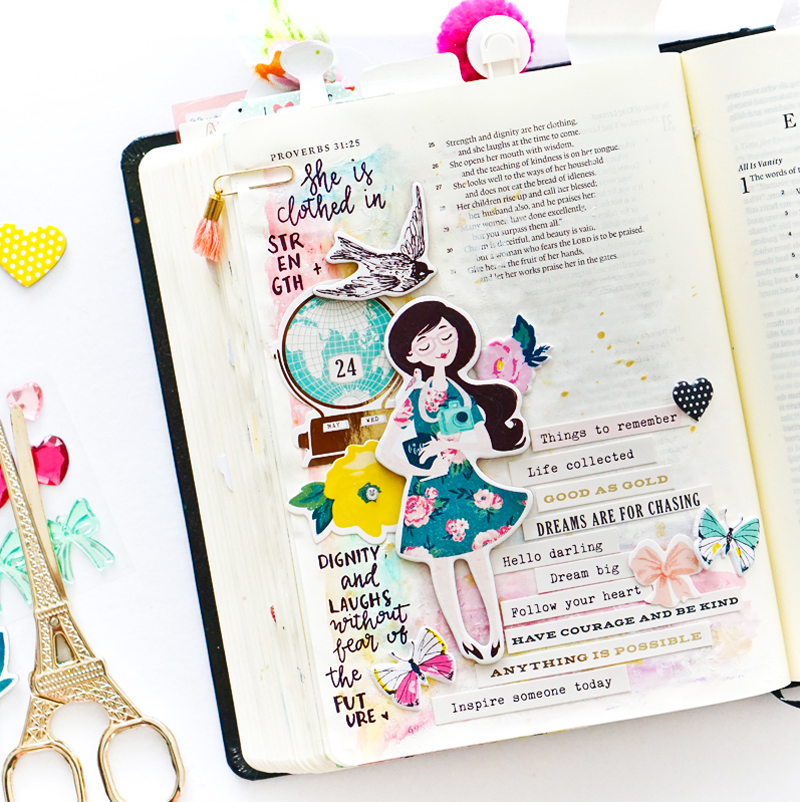 PROVERBS 31:25
She is
clothed in
STR
EN
GTH +
24
MAY WED
DIGNITY
and
LAUGHS
without
fear of
the
FUT
URE
25 Strength and dignity are her clothing,
and she laughs at the time to come.
26 She opens her mouth with wisdom,
and the teaching of kindness is on her tongue.
27 She looks well to the ways of her household
and does not eat the bread of idleness.
28 Her children rise up and call her blessed;
her husband also, and he praises her:
29 "Many women have done excellently,
but you surpass them all."
30 Charm is deceitful, and beauty is vain,
but a woman who fears the LORD is to be praised.
31 Give her of the fruit of her hands,
and let her works praise her in the gates.
Things to remember
Life collected
GOOD AS GOLD
DREAMS ARE FOR CHASING
Hello darling
Dream big
Follow your heart
HAVE COURAGE AND BE KIND
ANYTHING IS POSSIBLE
Inspire someone today
E
All Is Vanity
1 The words of
2
3